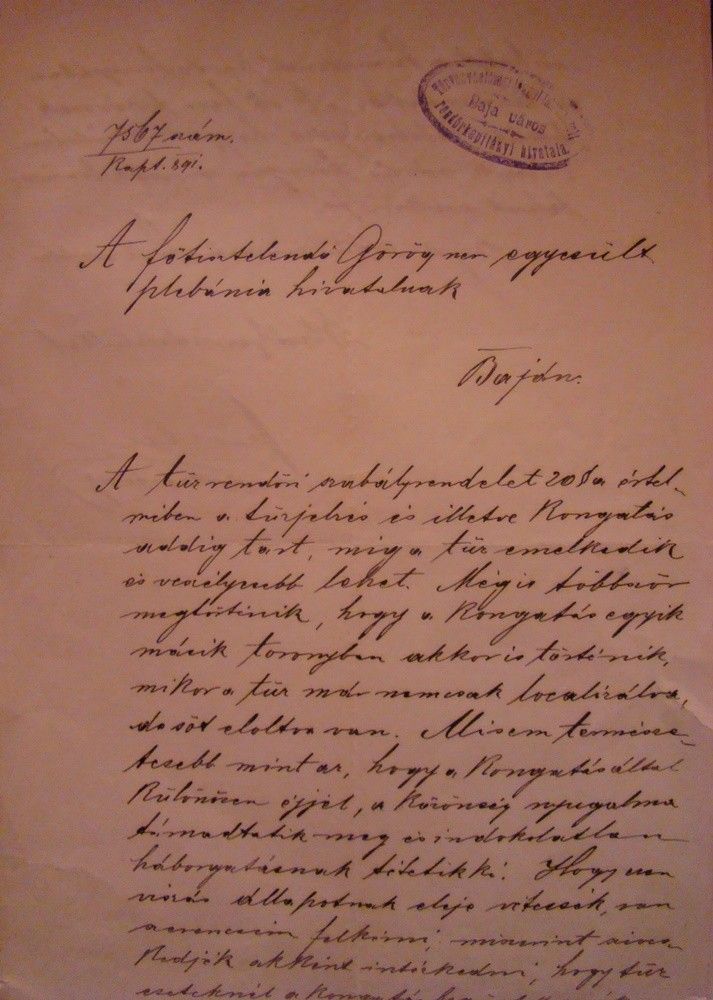 7567 szám.
Kapt. 891.
Baja város
rendőrkapitányi hivatala
A főtisztelendő Görög nem egyesült
plebánia hivatalnak
Baján.
A tűzrendőri szabályrendelet 20 § a értel-
mében a tűzjelzés és illetve kongatás
addig tart, mig a tűz emelkedik
és veszélyesebb lehet. Mégis többször
megtörténik, hogy a kongatás egyik
másik toronyban akkor is történik,
mikor a tűz már nemcsak localizálva,
de sőt eloltva van. Misem termesze-
tesebb mint az, hogy a kongatás által
különösen éjjel, a közönség nyugalma
támadtatik meg és indokolatlan
háborgatásnak tétetik ki. Hogy ezen
állapotnak eleje vétessék, van
szerencsém felkérni, miszerint szives-
kedjék akként intézkedni, hogy tűz
eseteknél a kongatás